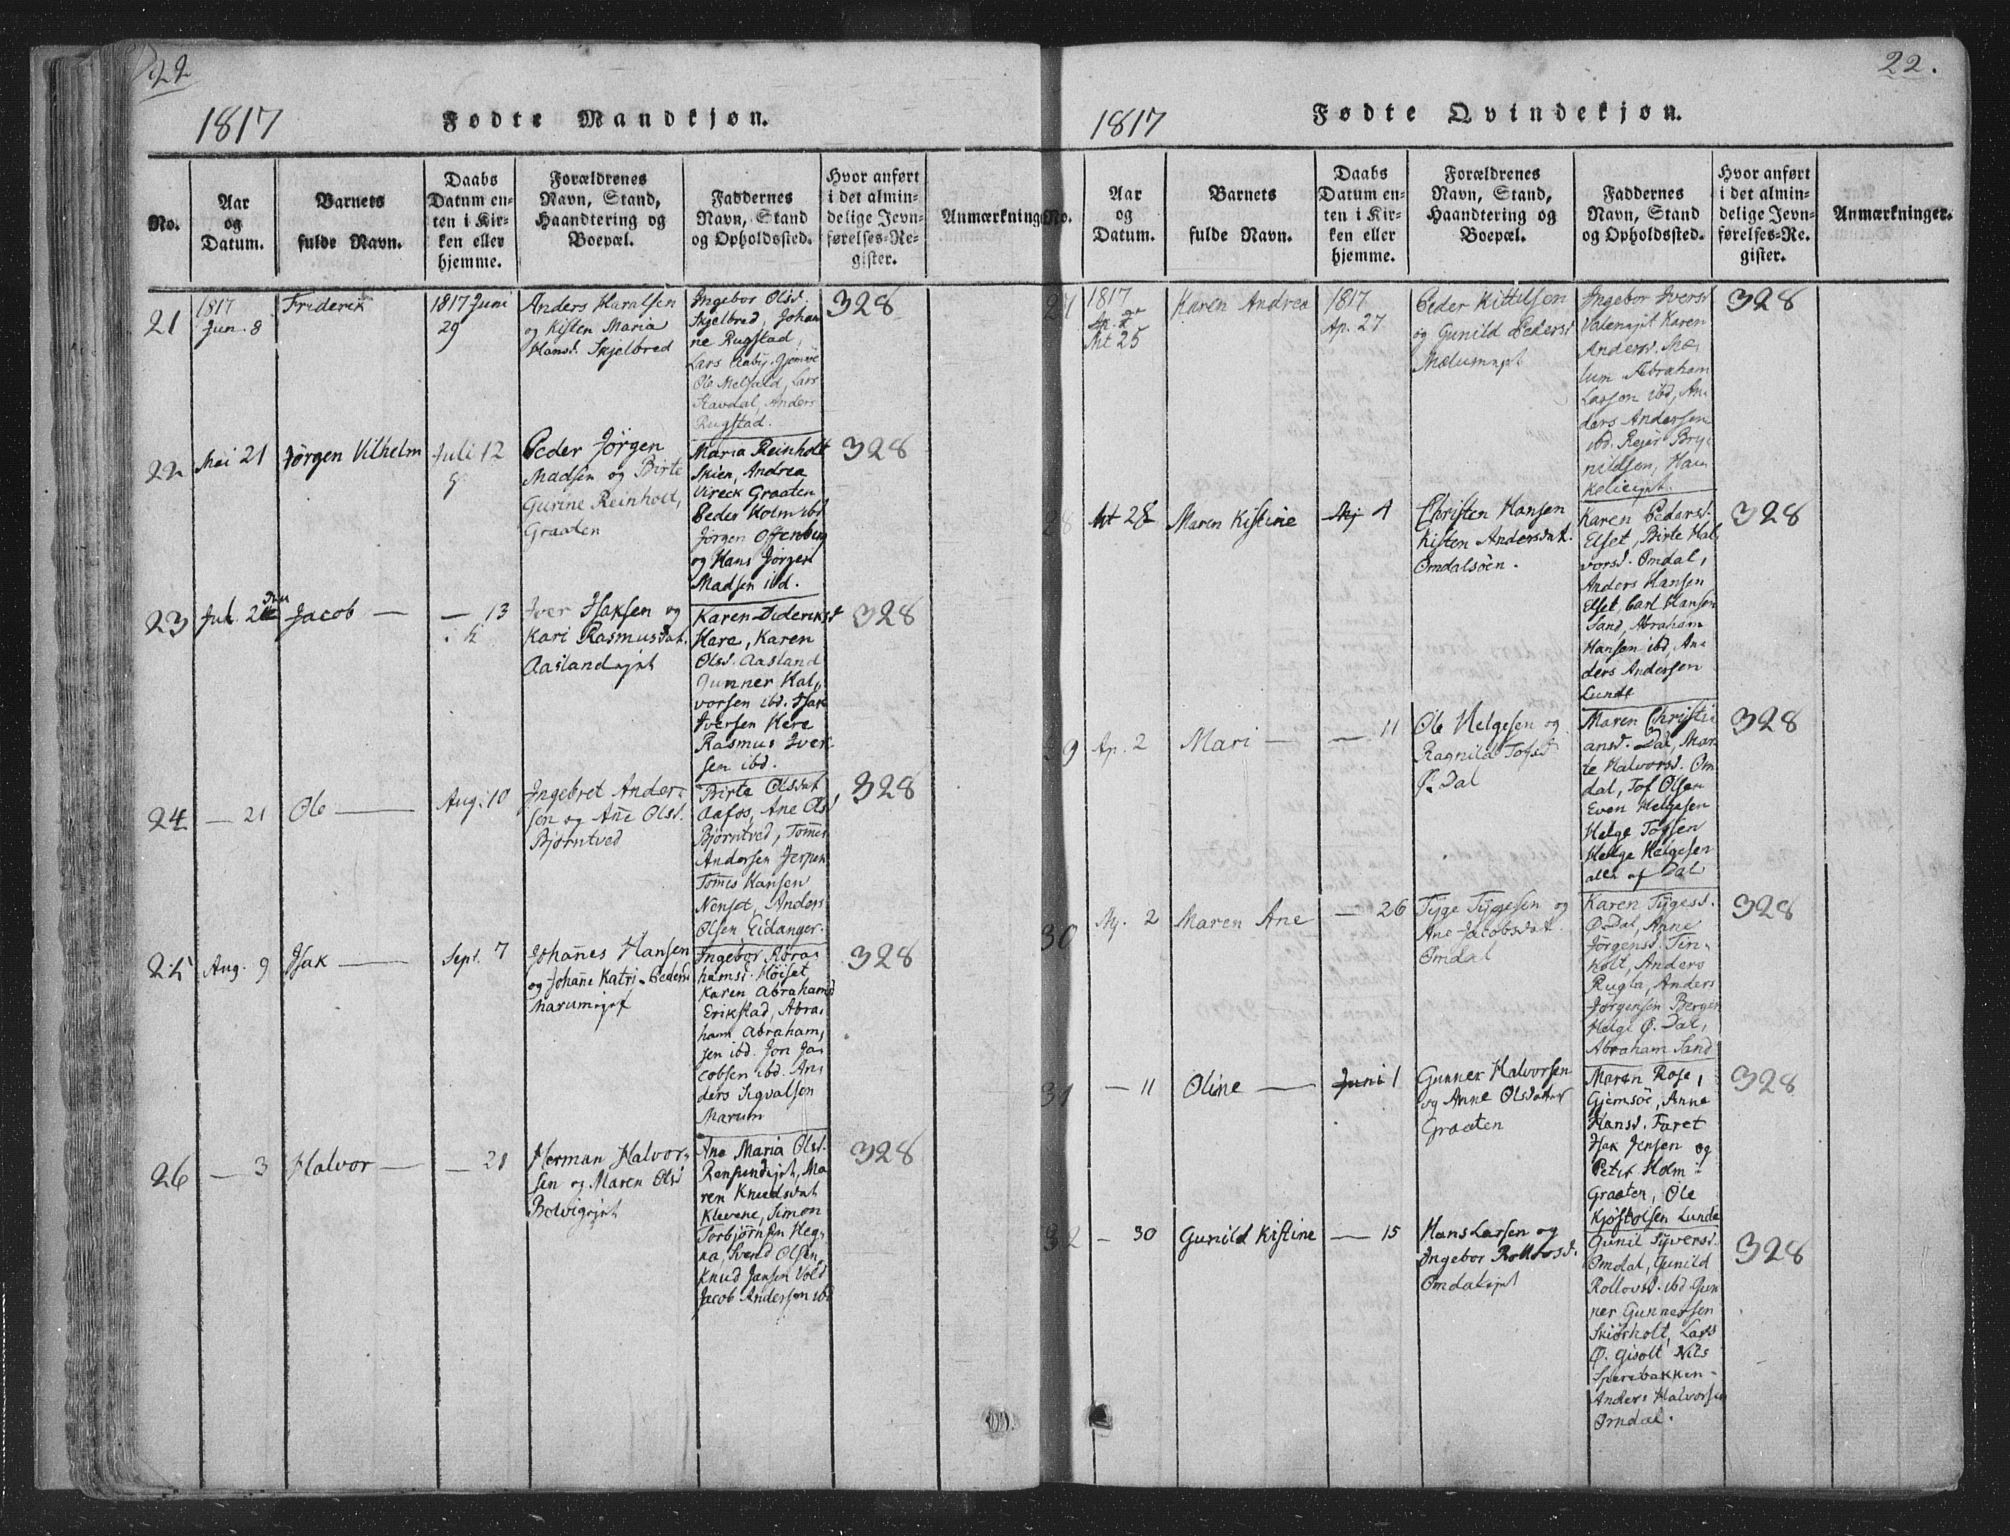 22
1817
Fødte Mandkjøn.
No.
Aar
og
Datum.
Barnets
fulde Navn.
Daabs
Datum en-
ten i Kir-
ken eller
hjemme.
Forældrenes
Navn, Stand,
Haandtering og
Boepæl.
Faddernes
Navn, Stand
og Opholdssted.
Hvor anført
i det almin-
delige Jevn-
førelses-Re-
gister.
Anmærkninge
21
1817
Jun. 8
Friderik
1817 Juni
29
Anders Haralsen
og Kisten Maria
Hansd. Skjelbred
Ingebor Olsd.
Skjelbred, Johan
ne Rugstad,
Lars Aaby Gjemsøe
Ole Melfald, Lars
Stavdal, Anders
Rugstad.
328
22
Mai 21
Jørgen Vilhelm
Juli 12
Peder Jørgen
Madsen og Birte
Gurine Reinholt,
Graaten
Maria Reinholt
Skien, Andrea
Vireck Graaten
Peder Holm ibd
Jørgen Offenberg
og Hans Jørgen
Madsen ibd.
328
23
Jacob —
— 13
Iver Isaksen og
Kari Rasmusdat.
Aaslandejet
Karen Dideriksd
Here, Karen
Olsd. Aasland
Gunner Hal,,
vorsen ibd. Isak
Iversen Here
Rasmus Iver-
sen ibd.
328
24
— 21
Ole —
Aug. 10
Ingebret Ander-
sen og Añe Olsd.
Bjørntved
Birte Olsdat
Aafos, Ane Olsd
Bjørntved, Tom̃es
Andersen Jerpen
Tom̃es Hansen
Nenset, Anders
Olsen Eidanger.
328
25
Aug. 9
Isak —
Sept. 7
Johañes Hansen
og Johañe Katri. Peders
Marumejet
Ingebor Abra-
hamsd. Høiset
Karen Abrahamsd
Erikstad, Abra-
ham Abraham,
sen ibd. Jon Ja-
cobsen ibd. An-
ders Sigvalsen
Marum
328
26
— 3
Halvor —
— 21
Herman Halvor-
sen og Maren Olsd
Bolvigejet
Ane Maria Olsd.
Rensundejet, Ma
ren Knudsdat
Klevene, Simon
Torbjørnsen Heg-
na, Svend Olsen,
Knud Jansen Vold
Jacob Andersen ibd
328
22.
1817
Fødte Qvindekjøn.
No.
Aar
og
Datum.
Barnets
fulde Navn.
Daabs
Datum en-
ten i Kir-
ken eller
hjemme.
Forældrenes
Navn, Stand,
Haandtering og
Boepæl.
Faddernes
Navn, Stand
og Opholdssted.
Hvor anført
i det almin-
delige Jevn-
førelses-Re-
gister.
Anmærkninger.
27
1817
Mt 25
Karen Andrea
1817
Ap. 27
Peder Kittelsen
og Gunild Pedersd
Mælumejet
Ingebor Iversd
Valenejet Karen
Andersd. Mæ-
lum Abraham
Larsen ibd, An-
ders Andersen
ibd. Rejer Bry-
nildsen, Hau
Kelieejet.
328
28
Mt 28
Maren Kistine
Mj 4
Christen Hansen
Kisten Andersdat.
Omdalsøen.
Karen Pedersd.
Elset, Birte Hal,
vorsd. Omdal,
Anders Hansen
Elset, Carl Hansen
Sand, Abraham
Hansen ibd, An-
ders Andersen
Lunde
328
29
Ap. 2
Mari —
— 11
Ole Helgesen og
Ragnild Tofsd
Ø. Dal
Maren Christi-
ansd. Dal, Mar
te Halvorsd. Om
dal, Tof Olsen
Even Helgesen
Helge Tofsen
Helge Helgesen
alle af Dal
328
30
Mj. 2
Maren Ane
— 26
Tyge Tygesen og
Ane Jacobsdat.
Omdal
Karen Tygesd.
Ø. Dal, Anne
Jørgensd. Tin-
holt, Anders
Rugla, Anders
Jørgensen Bergen
Helge Ø. Dal,
Abraham Sand
328
31
— 11
Oline —
Juni 1
Gunner Halvorsen
og Anne Olsdatter
Graaten
Maren Rose,
Gjemsøe, Anne
Hansd. Faret
Isak Jensen og
Peter Holm
Graaten, Ole
Kjøstolsen Lunde
328
32
— 30
Gunild Kistine
— 15
Hans Larsen og
Ingebor Rollovsd.
Omdalejet
Gunil Syversd.
Omdal, Gunild
Rollovsd. ibd. Gun
ner Gunnersen
Skiørholt, Lars
Ø. Gisolt Nils
Sperebakken-
Anders Halvorsen
Omdal.
328